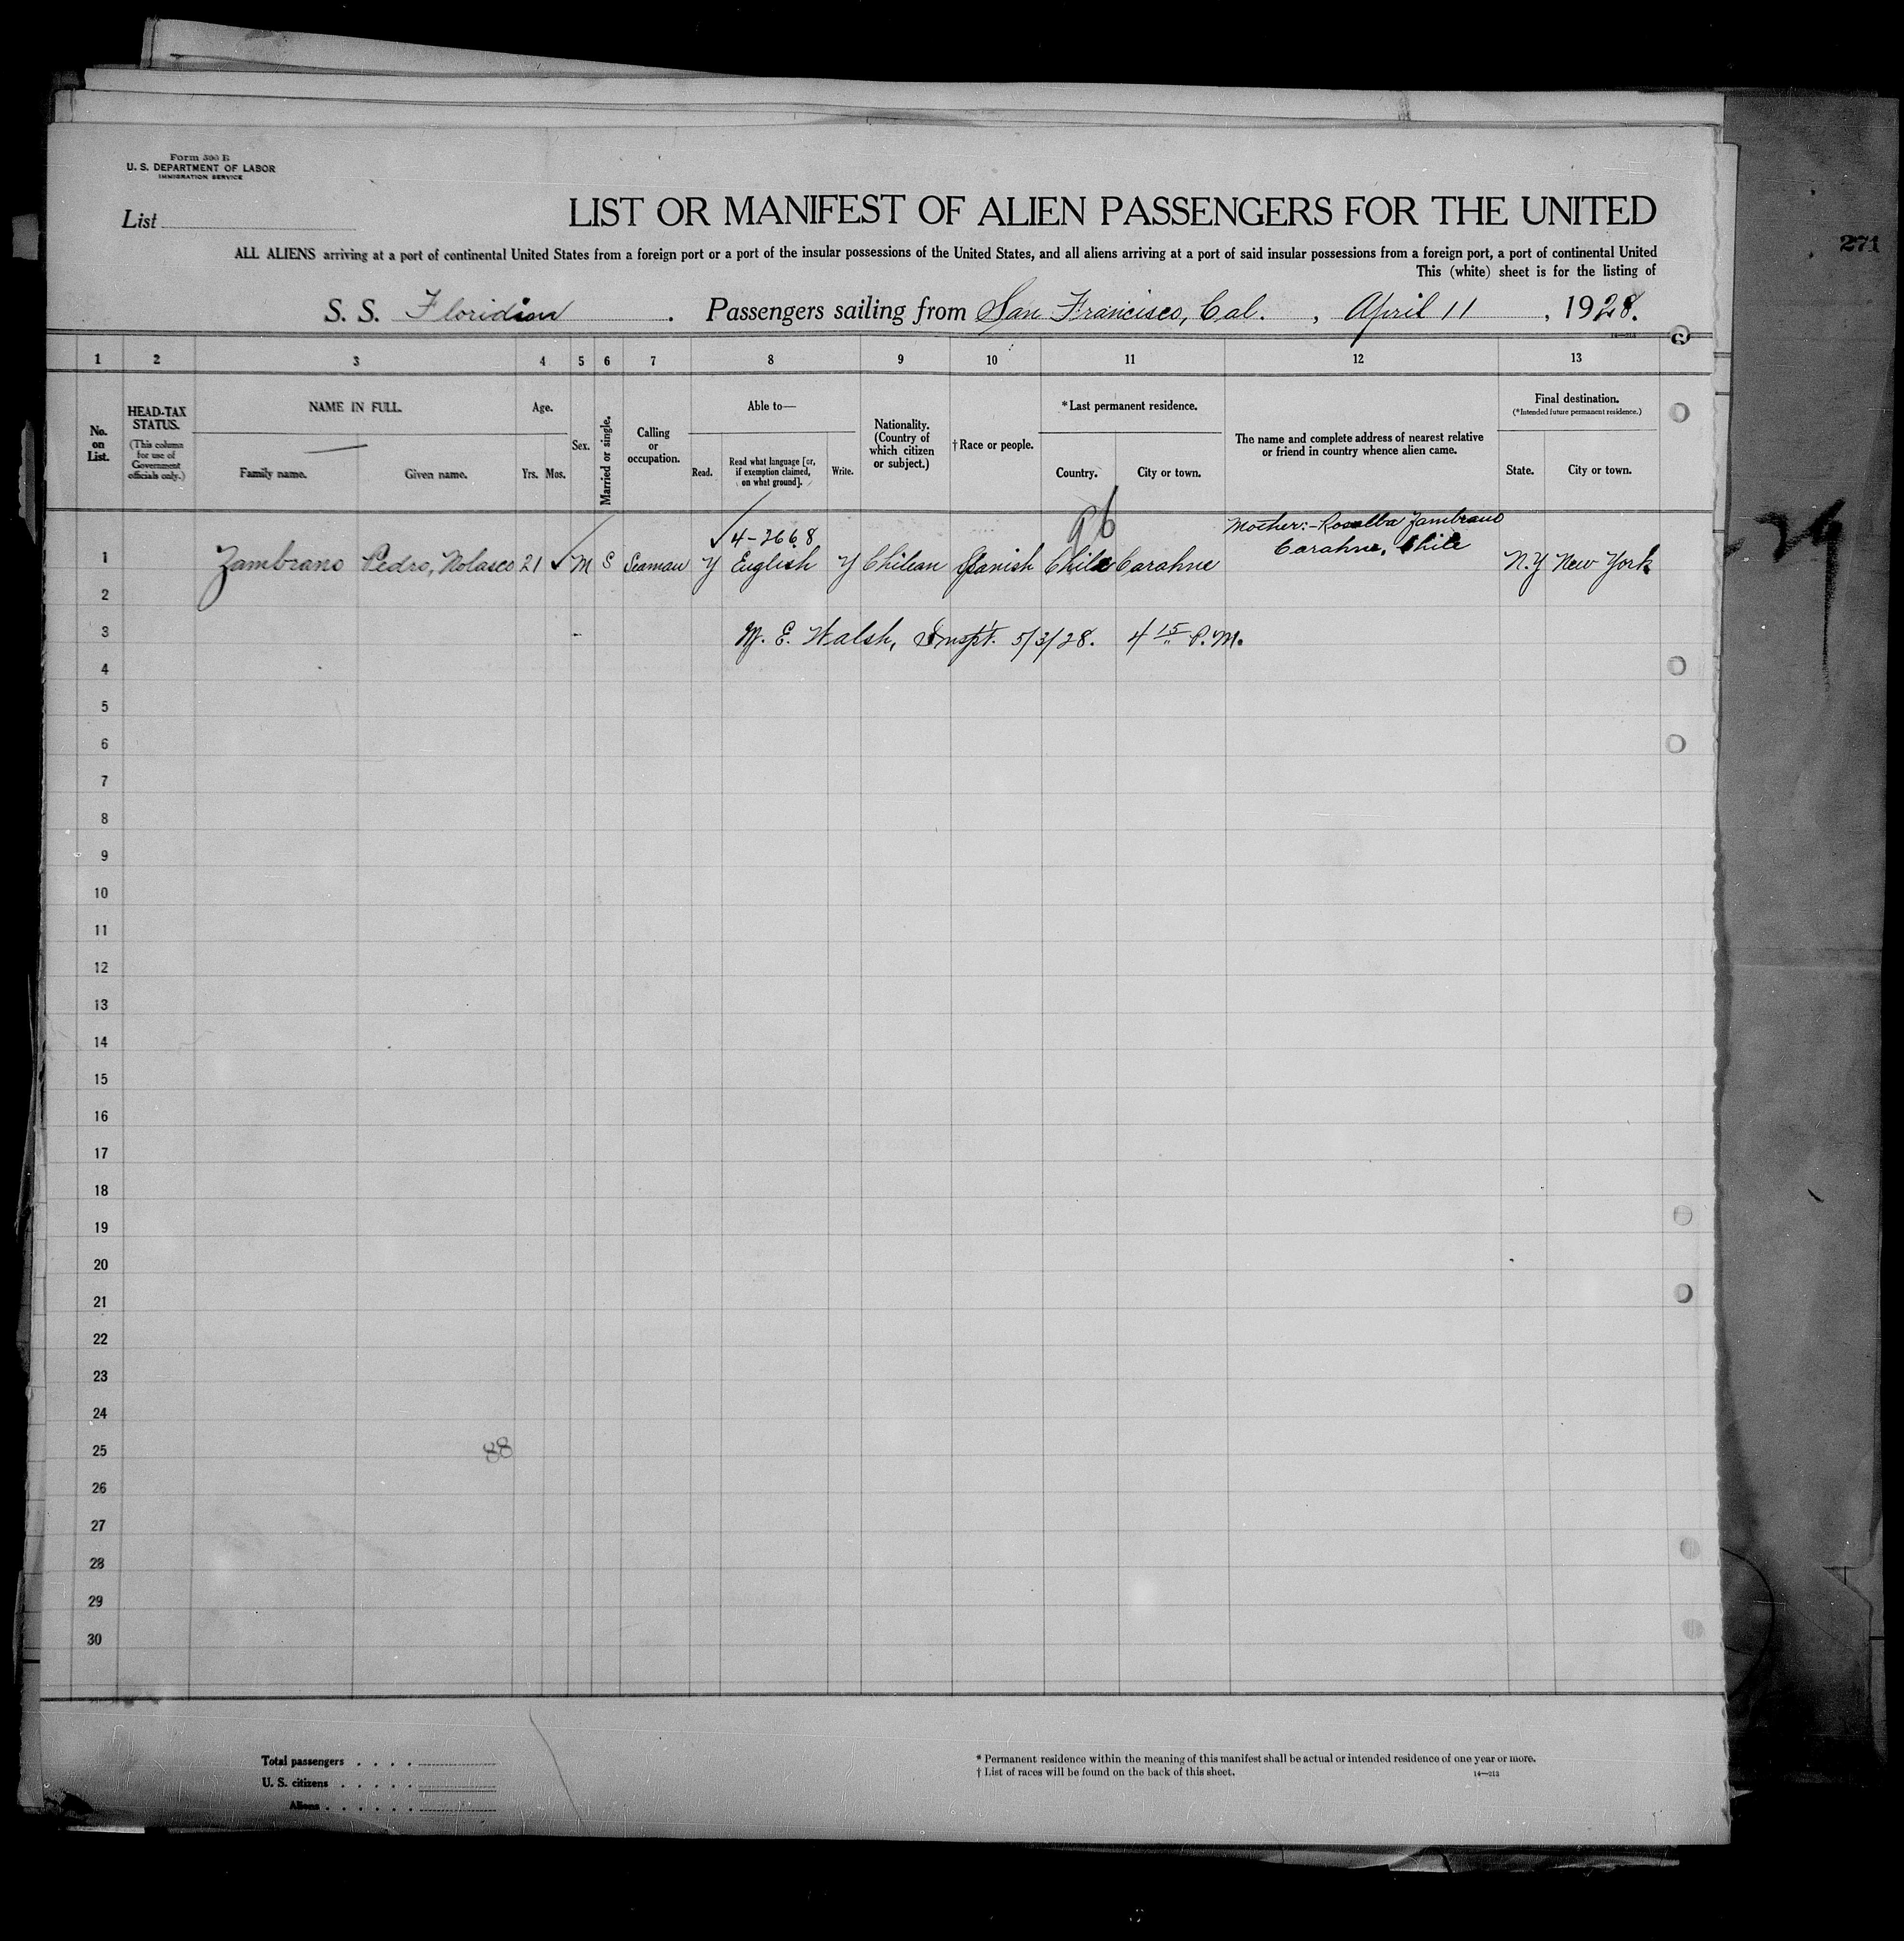 Form 500 B
U. S. DEPARTMENT OF LABOR
IMMIGRATION SERVICE
List
LIST OR MANIFEST OF ALIEN PASSENGERS FOR THE UNITED
ALL ALIENS arriving at a port of continental United States from a foreign port or a port of the insular possessions of the United States, and all aliens arriving at a port of said insular possessions from a foreign port, a port of continental United
This (white) sheet is for the listing of
271
S. S. Floridian . Passengers sailing from San Francisco, Cal. , April 11 , 1928.
1 2 3 4 5 6 7 8 9 10 11 12 13
No. on List.
HEAD-TAX STATUS.
(This column for use of Government officials only.)
NAME IN FULL.
Family name. Given name.
Age.
Yrs. Mos.
Sex.
Married or single.
Calling or occupation.
Able to—
Read. Read what language [or, if exemption claimed, on what ground]. Write.
Nationality. (Country of which citizen or subject.)
†Race or people.
*Last permanent residence.
Country. City or town.
The name and complete address of nearest relative or friend in country whence alien came.
Final destination.
(*Intended future permanent residence.)
State. City or town.
4-2668
96
Mother:- Rosalba Zambrano
Carahne, Chile
1 Zambrano Pedro, Nolasco 21 ✓ M S Seaman Y English Y Chilean Spanish Chile Carahne N.Y New York
2
3 W. E. Walsh, Inspt. 5/3/28. 4 15 P.M.
4
5
6
7
8
9
10
11
12
13
14
15
16
17
18
19
20
21
22
23
24
25 88
26
27
28
29
30
Total passengers . . . .
U. S. citizens . . . . .
Aliens . . . . . .
* Permanent residence within the meaning of this manifest shall be actual or intended residence of one year or more.
† List of races will be found on the back of this sheet.
14—213